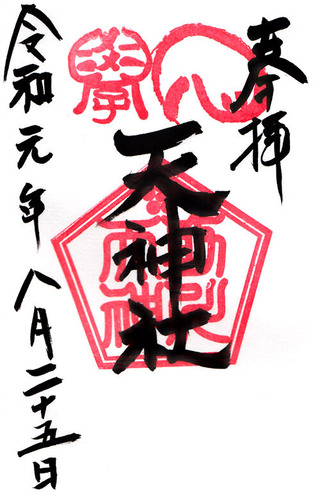 奉拝
天神社
令和元年八月二十五日